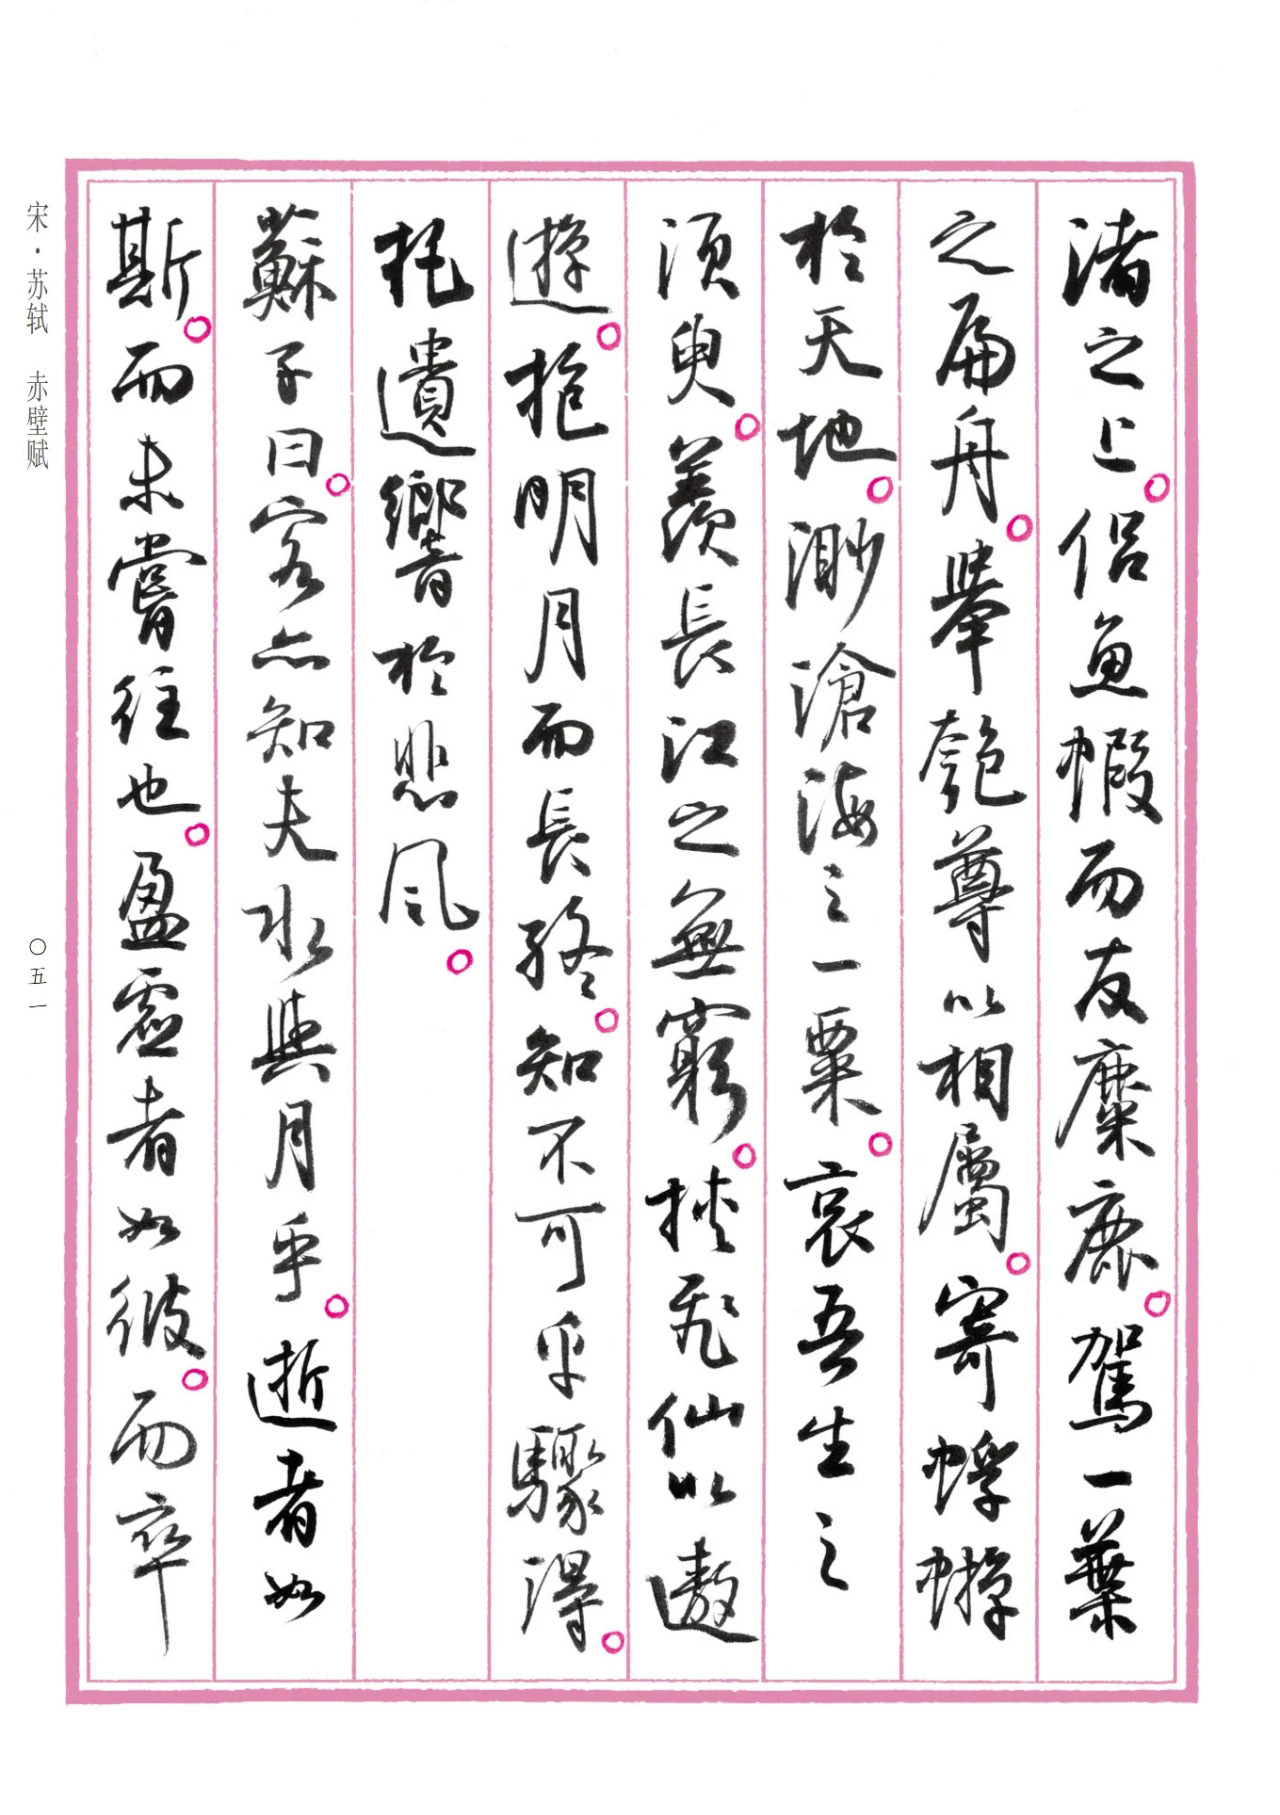 渚之上。侶魚蝦而友麋鹿。駕一葉
之扁舟。舉匏尊以相屬。寄蜉蝣
於天地。渺滄海之一粟。哀吾生之
須臾。羨長江之無窮。挾飛仙以遨
遊。抱明月而長終。知不可乎驟得。
托遺響於悲風。
蘇子曰。客亦知夫水與月乎。逝者如
斯。而未嘗往也。盈虛者如彼。而卒
宋·苏轼 赤壁赋
〇五一